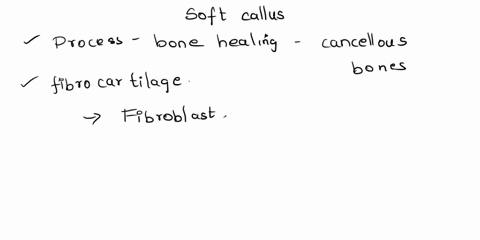 Soft callus
✓ Process - bone healing - cancellous
bones
✓ fibro cartilage.
→ Fibroblast.